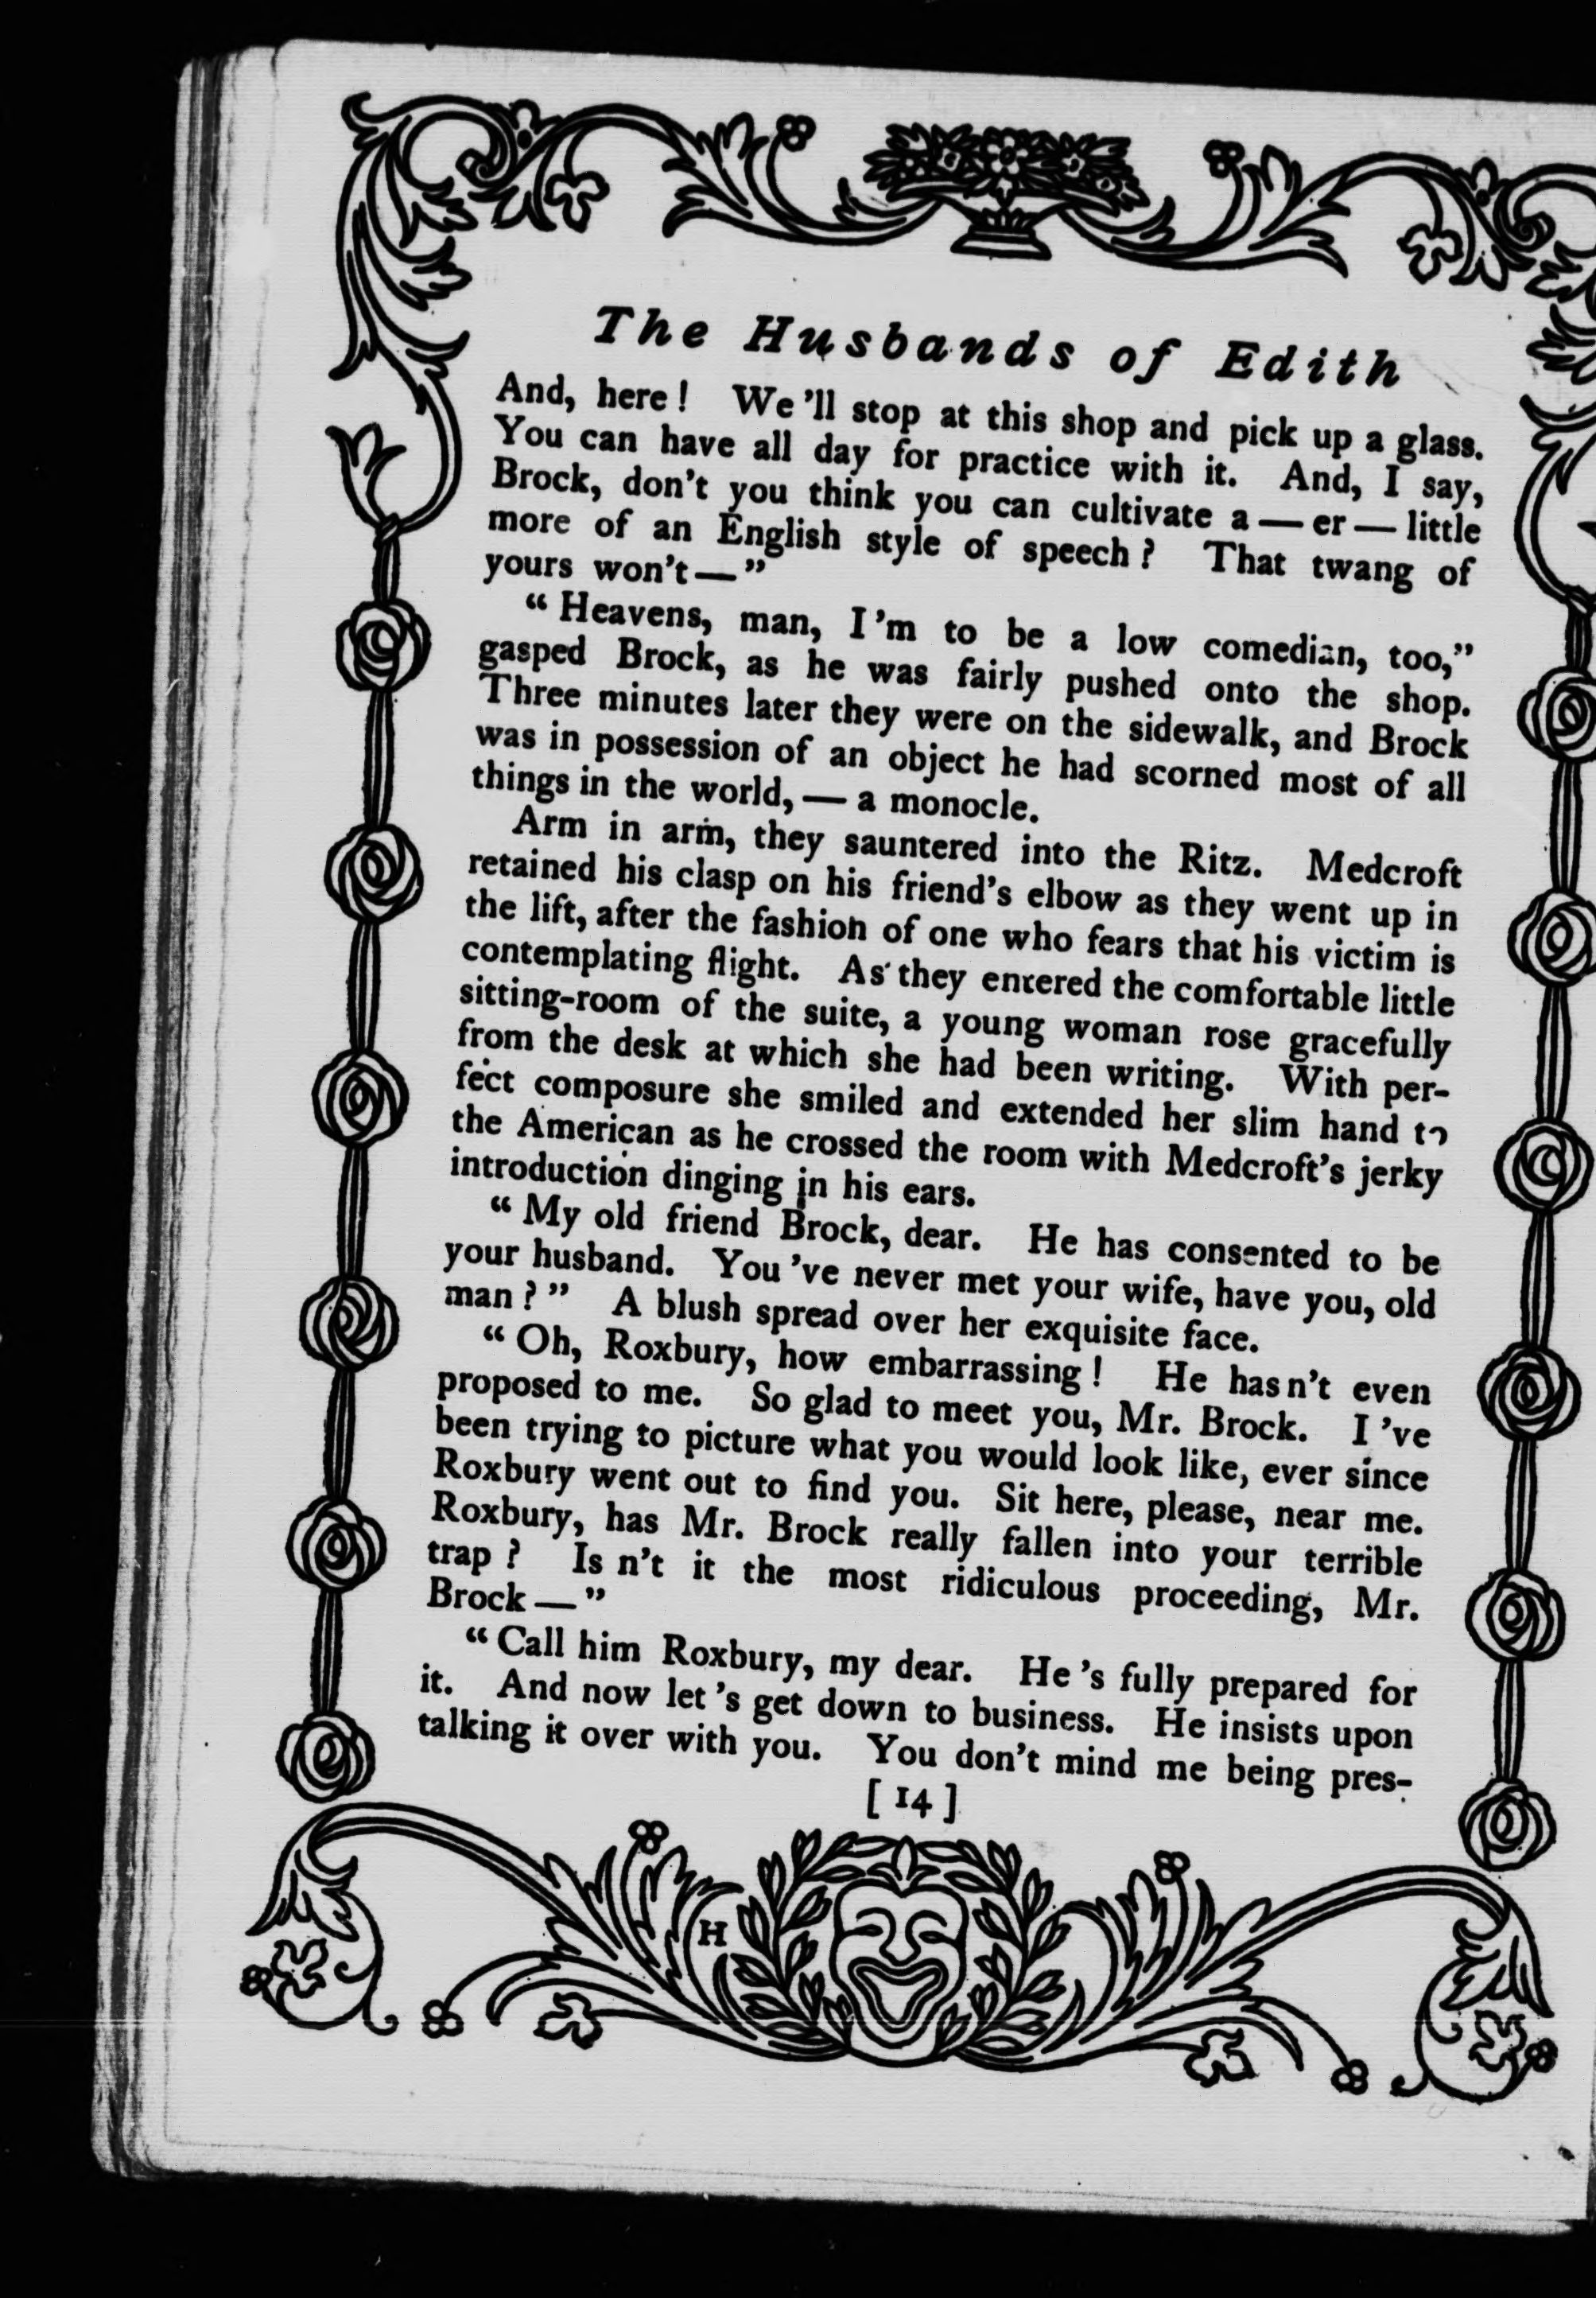 The Husbands of Edith
And, here! We'll stop at this shop and pick up a glass.
You can have all day for practice with it. And, I say,
Brock, don't you think you can cultivate a — er — little
more of an English style of speech? That twang of
yours won't — "
"Heavens, man, I'm to be a low comedian, too,"
gasped Brock, as he was fairly pushed onto the shop.
Three minutes later they were on the sidewalk, and Brock
was in possession of an object he had scorned most of all
things in the world, — a monocle.
Arm in arm, they sauntered into the Ritz. Medcroft
retained his clasp on his friend's elbow as they went up in
the lift, after the fashion of one who fears that his victim is
contemplating flight. As they entered the comfortable little
sitting-room of the suite, a young woman rose gracefully
from the desk at which she had been writing. With per-
fect composure she smiled and extended her slim hand to
the American as he crossed the room with Medcroft's jerky
introduction dinging in his ears.
"My old friend Brock, dear. He has consented to be
your husband. You've never met your wife, have you, old
man?" A blush spread over her exquisite face.
"Oh, Roxbury, how embarrassing! He hasn't even
proposed to me. So glad to meet you, Mr. Brock. I've
been trying to picture what you would look like, ever since
Roxbury went out to find you. Sit here, please, near me.
Roxbury, has Mr. Brock really fallen into your terrible
trap? Is n't it the most ridiculous proceeding, Mr.
Brock — "
"Call him Roxbury, my dear. He's fully prepared for
it. And now let's get down to business. He insists upon
talking it over with you. You don't mind me being pres-
[14]
H